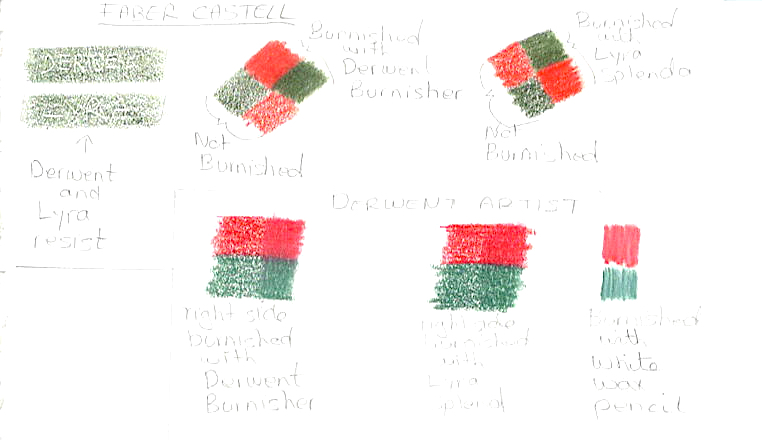 FABER CASTELL
DERWENT
Burnished
with
Derwent
Burnisher
Not
Burnished
Burnished
with
Lyra
Splenda
Not
Burnished
Derwent
and
Lyra
resist
DERWENT ARTIST
right side
burnished
with
Derwent
Burnisher
right side
burnished
with
Lyra
Splend
Burnished
with
white
wax
pencil